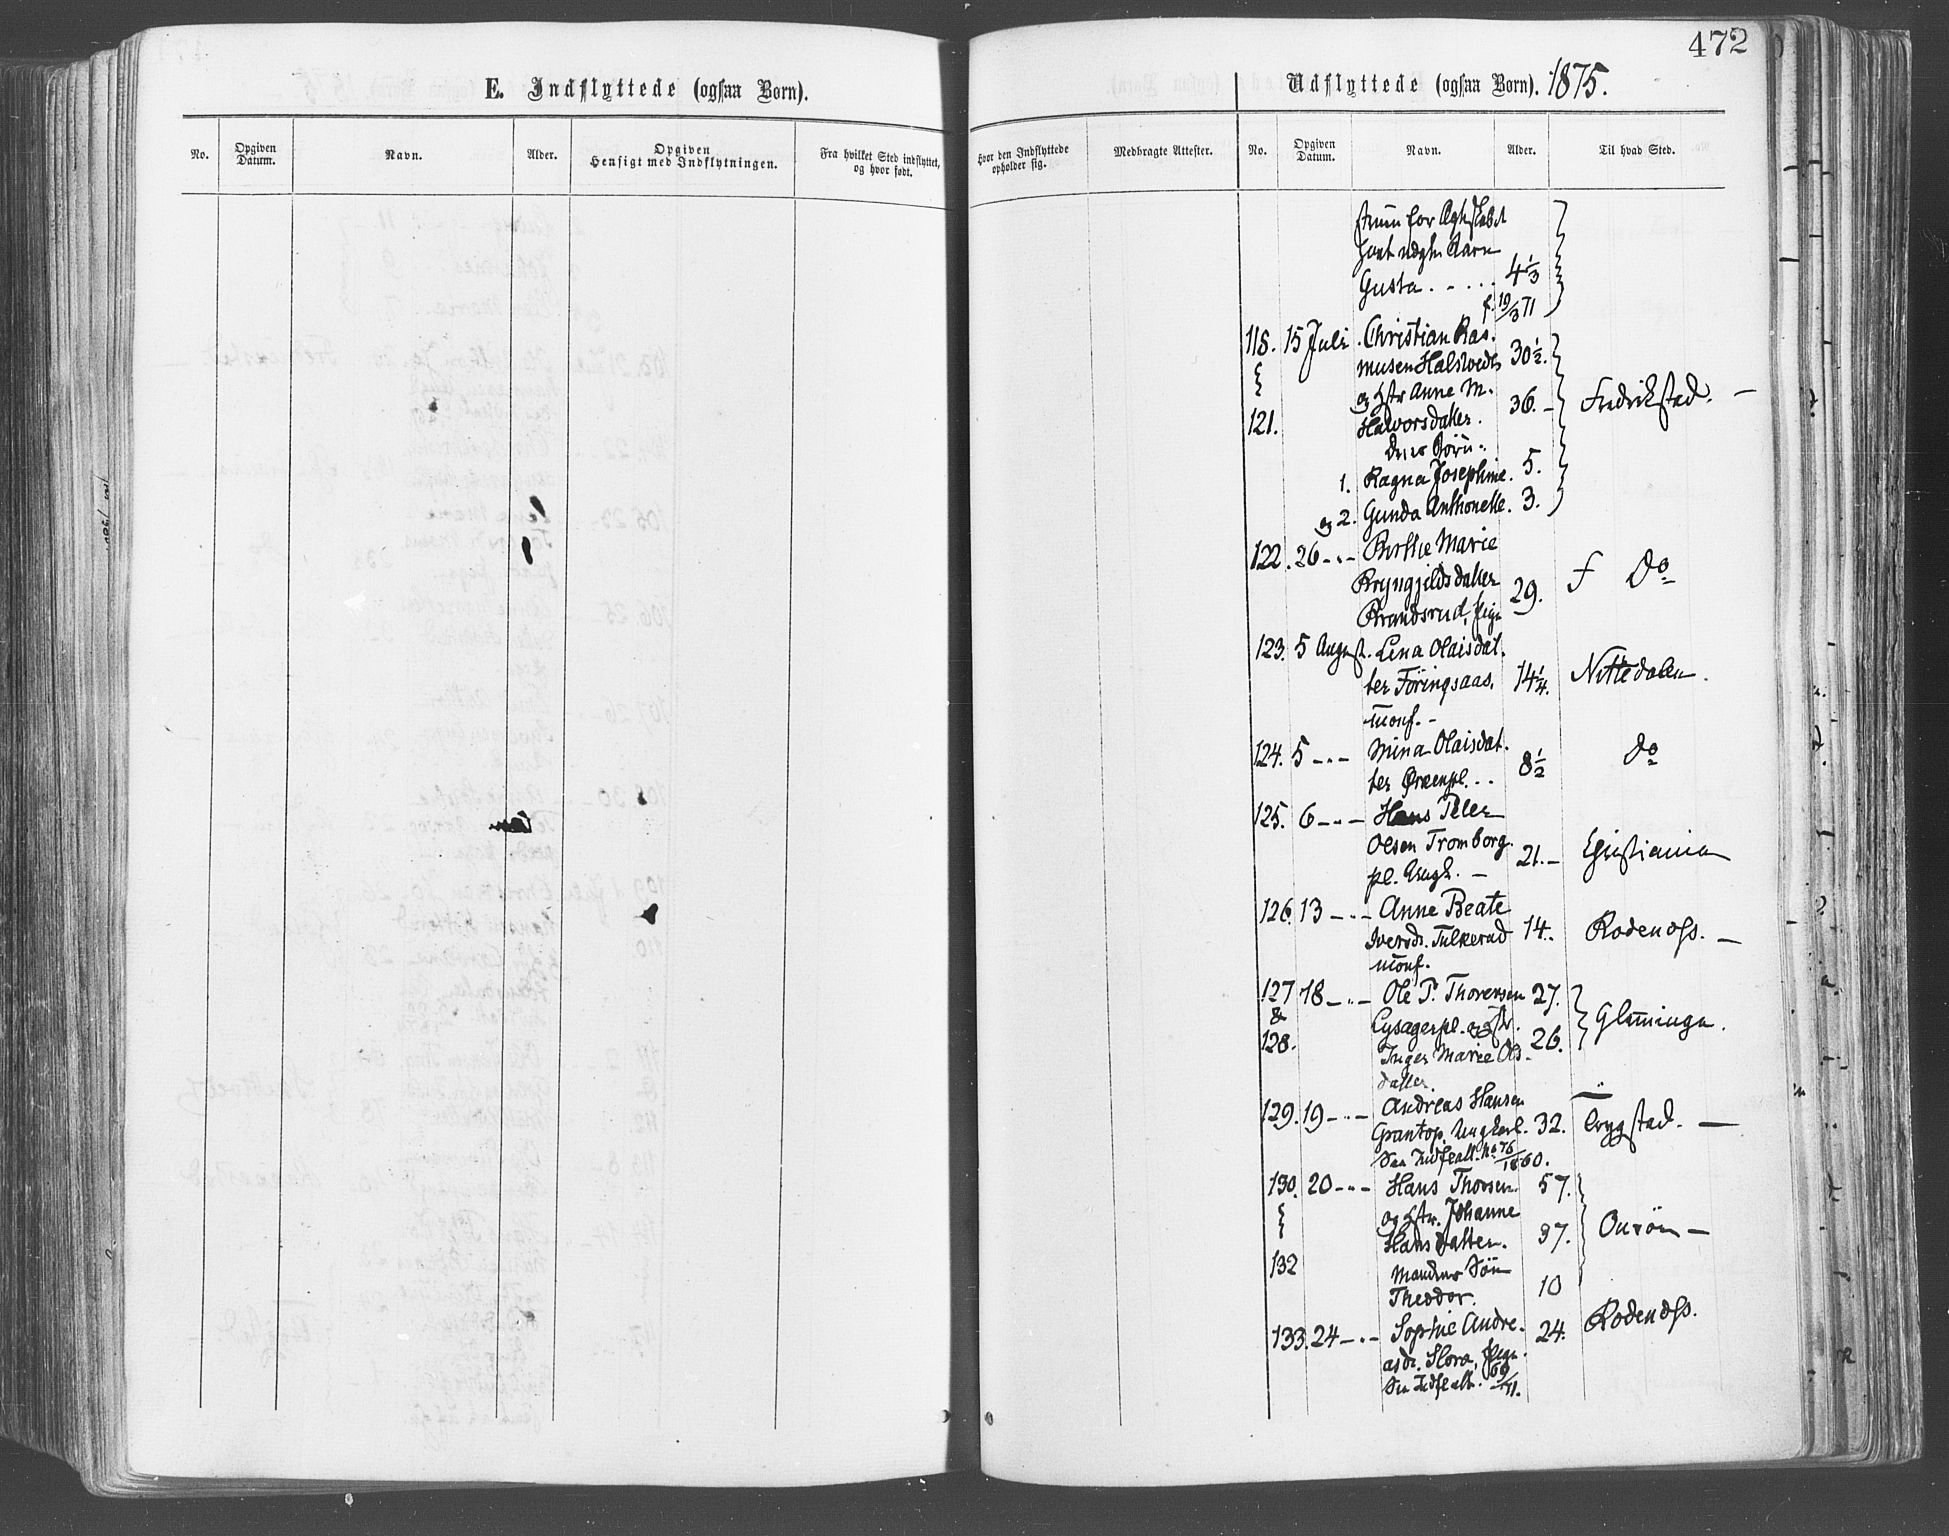 472
E. Indflyttede (ogsaa Børn).
Udflyttede (ogsaa Børn). 1875.
No.
Opgiven Datum.
Navn.
Alder.
Opgiven Hensigt med Indflytningen.
Fra hvilket Sted indflyttet, og hvor født.
Hvor den Indflyttede opholder sig.
Medbragte Attester.
No.
Opgiven Datum.
Navn.
Alder.
Til hvad Sted.
for
Gusta . - . . . 4 1/3
f. 19/3 71
118. 15 Juli . Christian Ras-
musen Halstvedt 30 1/2.
og Hstr Anne M. 36. - Fredrikstad. -
121. Halvorsdatter.
Børn.
1. Ragna Josephine. 5.
og 2. Gunda Anthonette. 3.
122. 26 - " - Marie
Bryngjeldsdatter 29. Do
Brandsrud, Pige
123. 5 August. Lina Olaisdat-
ter Föringsaas, 14 1/4. Nittedalen.
ukonf. -
124. 5 - " - Mina Olaisdat-
ter 8 1/2 Do
125. 6 - " - Hans Peter
Olsen Tromborg- 21. - Christiania
pl. Ungk. -
126. 13 - " - Anne Beate
Iversdr. Tulkerud 14. Rodenæs. -
ukonf.
127 18 - " - Ole P. Thoresen 27.
& Lysagerpl. og Hstr. Glemminge.
128. Inger Marie Ols- 26.
datter.
129. 19 - " - Andreas Hansen
Grantop, Ungkarl. 32. Trygstad. -
Se Indfealt. No 76/1860.
130. 20 - " - Hans Thorsen 57.
og Hstr. Johanne
Hansdatter. 37. Onsöe -
132 Mandens Sön
Theodor. 10
133. 24 - " - Sophie Andre- 24. Rodenæs.
asdr. Slora, Pige.
Se Indfealt. 69/71.